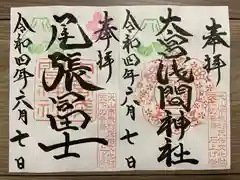 奉拝
大宮浅間神社
令和四年六月七日
奉拝
尾張冨士
令和四年六月七日